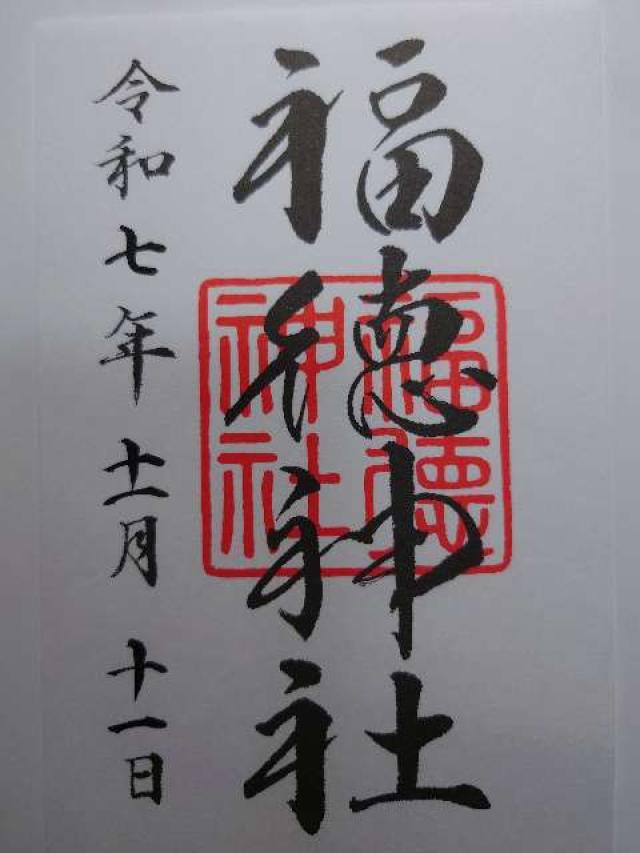 福徳神社
福徳神社
令和七年十一月十一日